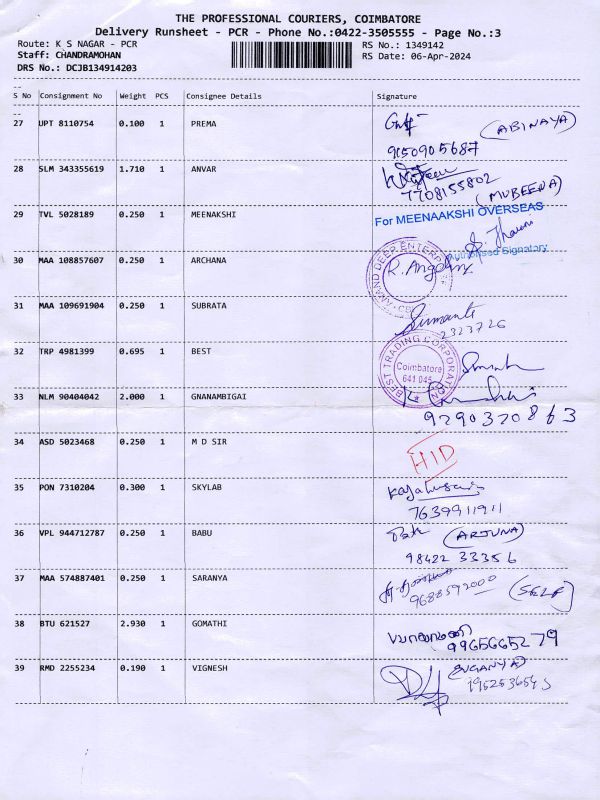 THE PROFESSIONAL COURIERS, COIMBATORE
Delivery Runsheet - PCR - Phone No.:0422-3505555 - Page No.:3
Route: K S NAGAR - PCR RS No.: 1349142
Staff: CHANDRAMOHAN RS Date: 06-Apr-2024
DRS No.: DCJB134914203
S No Consignment No Weight PCS Consignee Details Signature
27 UPT 8110754 0.100 1 PREMA (ABINAYA)
9150905687
28 SLM 343355619 1.710 1 ANVAR
7708155802 (MUBEENA)
29 TVL 5028189 0.250 1 MEENAKSHI For MEENAAKSHI OVERSEAS
Authorised Signatory
30 MAA 108857607 0.250 1 ARCHANA ANAND DEEP
31 MAA 109691904 0.250 1 SUBRATA
2323726
32 TRP 4981399 0.695 1 BEST BEST TRADING CORPORATION
Coimbatore
641 045
33 NLM 90404042 2.000 1 GNANAMBIGAI
9290320863
34 ASD 5023468 0.250 1 M D SIR HID
35 PON 7310204 0.300 1 SKYLAB
7639911911
36 VPL 944712787 0.250 1 BABU (ARJUNA)
98422 33356
37 MAA 574887401 0.250 1 SARANYA
9688592000 (SELF)
38 BTU 621527 2.930 1 GOMATHI
9965665279
39 RMD 2255234 0.190 1 VIGNESH (SUGANYA)